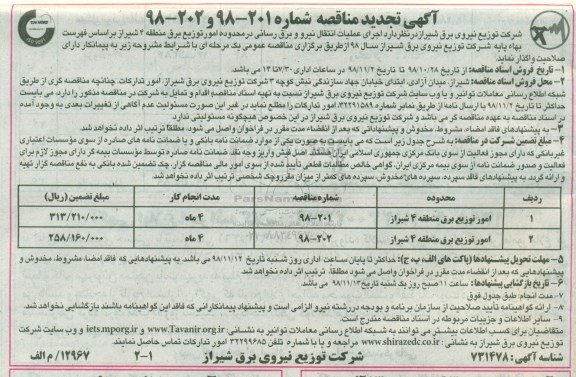 آگهی تجدید مناقصه شماره ۲۰۱-۹۸ و ۲۰۲-۹۸
شرکت توزیع نیروی برق شیراز در نظر دارد اجرای عملیات انتقال نیرو و برق رسانی در محدوده امور توزیع برق منطقه ۴ شیراز بر اساس فهرست
بهاء پایه شرکت توزیع نیروی برق شیراز سال ۹۸ از طریق برگزاری مناقصه عمومی یک مرحله ای با شرایط مشروحه زیر به پیمانکار دارای
صلاحیت واگذار نماید.
۱- تاریخ فروش اسناد مناقصه: از تاریخ ۹۸/۱۰/۲۸ تا تاریخ ۹۸/۱۱/۲ در ساعات اداری ۷/۳۰ تا ۱۴ می باشد.
۲- محل فروش اسناد مناقصه: شیراز، میدان آزادی، ابتدای خیابان جهاد سازندگی نبش کوچه ۳ شرکت توزیع نیروی برق شیراز، امور تدارکات چنانچه مناقصه گری از طریق
شبکه اطلاع رسانی معاملات توانیر و یا وب سایت شرکت توزیع نیروی برق شیراز نسبت به تهیه اسناد مناقصه اقدام و تمایل به شرکت در مناقصه مذکور را دارد، می بایست
حداکثر تا تاریخ ۹۸/۱۱/۲ با ارسال نامه از طریق نمابر شماره ۳۲۲۹۱۵۸۹ امور تدارکات را مطلع نماید در غیر این صورت مسئولیت عدم آگاهی از تغییرات بعدی به وجود آمده
در اسناد مناقصه به عهده مناقصه گر می باشد و شرکت توزیع نیروی برق شیراز در این خصوص هیچگونه مسئولیتی ندارد.
۳- به پیشنهادهای فاقد امضاء، مشروط، مخدوش و پیشنهاداتی که بعد از انقضاء مدت مقرر در فراخوان واصل می شود، مطلقا ترتیب اثر داده نخواهد شد.
۴- مبلغ تضمین شرکت در مناقصه: به شرح جدول زیر است که می بایست به صورت یکی از موارد ضمانت نامه بانکی و یا ضمانت نامه های صادره از سوی مؤسسات اعتباری
غیربانکی که دارای مجوز فعالیت از سوی بانک مرکزی جمهوری اسلامی ایران هستند، اصل فیش واریز وجه نقد، ضمانت نامه صادره توسط مؤسسات بیمه گر دارای مجوز لازم برای
فعالیت و صدور ضمانت نامه از سوی بیمه مرکزی ایران، گواهی خالص مطالبات قطعی تأیید شده از سوی امور مالی مناقصه گزار، چک تضمین شده بانکی به نفع مناقصه گزار تهیه
و ارائه گردد. به پیشنهادهای فاقد سپرده، سپرده های مخدوش، سپرده های کمتر از میزان مقرر و چک شخصی ترتیب اثر داده نخواهد شد.
ردیف محدوده شماره مناقصه مدت انجام کار مبلغ تضمین (ریال)
۱ امور توزیع برق منطقه ۴ شیراز ۹۸-۲۰۱ ۴ ماه ۳۱۳/۲۱۰/۰۰۰
۲ امور توزیع برق منطقه ۴ شیراز ۹۸-۲۰۲ ۴ ماه ۲۵۸/۱۶۰/۰۰۰
۵- مهلت تحویل پیشنهادها (پاکت های الف، ب، ج): حداکثر تا پایان ساعت اداری روز شنبه تاریخ ۹۸/۱۱/۱۲ می باشد. به پیشنهادهایی که فاقد امضا، مشروط، مخدوش و
پیشنهادهایی که بعد از انقضاء مدت مقرر در فراخوان واصل می شود مطلقا، ترتیب اثر داده نخواهد شد.
۶- تاریخ بازگشایی پیشنهادها: ساعت ۱۱ صبح روز یک شنبه تاریخ ۹۸/۱۱/۱۳ می باشد.
۷- مدت انجام: طبق جدول فوق
۸- ارائه گواهینامه تأیید صلاحیت از سازمان برنامه و بودجه در رشته نیرو الزامی است و پیشنهاد پیمانکارانی که فاقد این گواهینامه باشند بازگشایی نخواهد شد.
۹- سایر اطلاعات و جزئیات مربوطه در اسناد مناقصه مندرج است.
متقاضیان برای کسب اطلاعات بیشتر می توانند به شبکه اطلاع رسانی معاملات توانیر به نشانی: www.Tavanir.org.ir و iets.mporg.ir و وب سایت شرکت
توزیع نیروی برق شیراز به نشانی: www.shirazedc.co.ir مراجعه و یا با شماره تلفن ۳۲۲۹۹۶۸۵ امور تدارکات تماس حاصل نمایند.
شناسه آگهی: ۷۳۱۴۷۸ شرکت توزیع نیروی برق شیراز ۲-۱ ۱۲۹۶۷/م الف